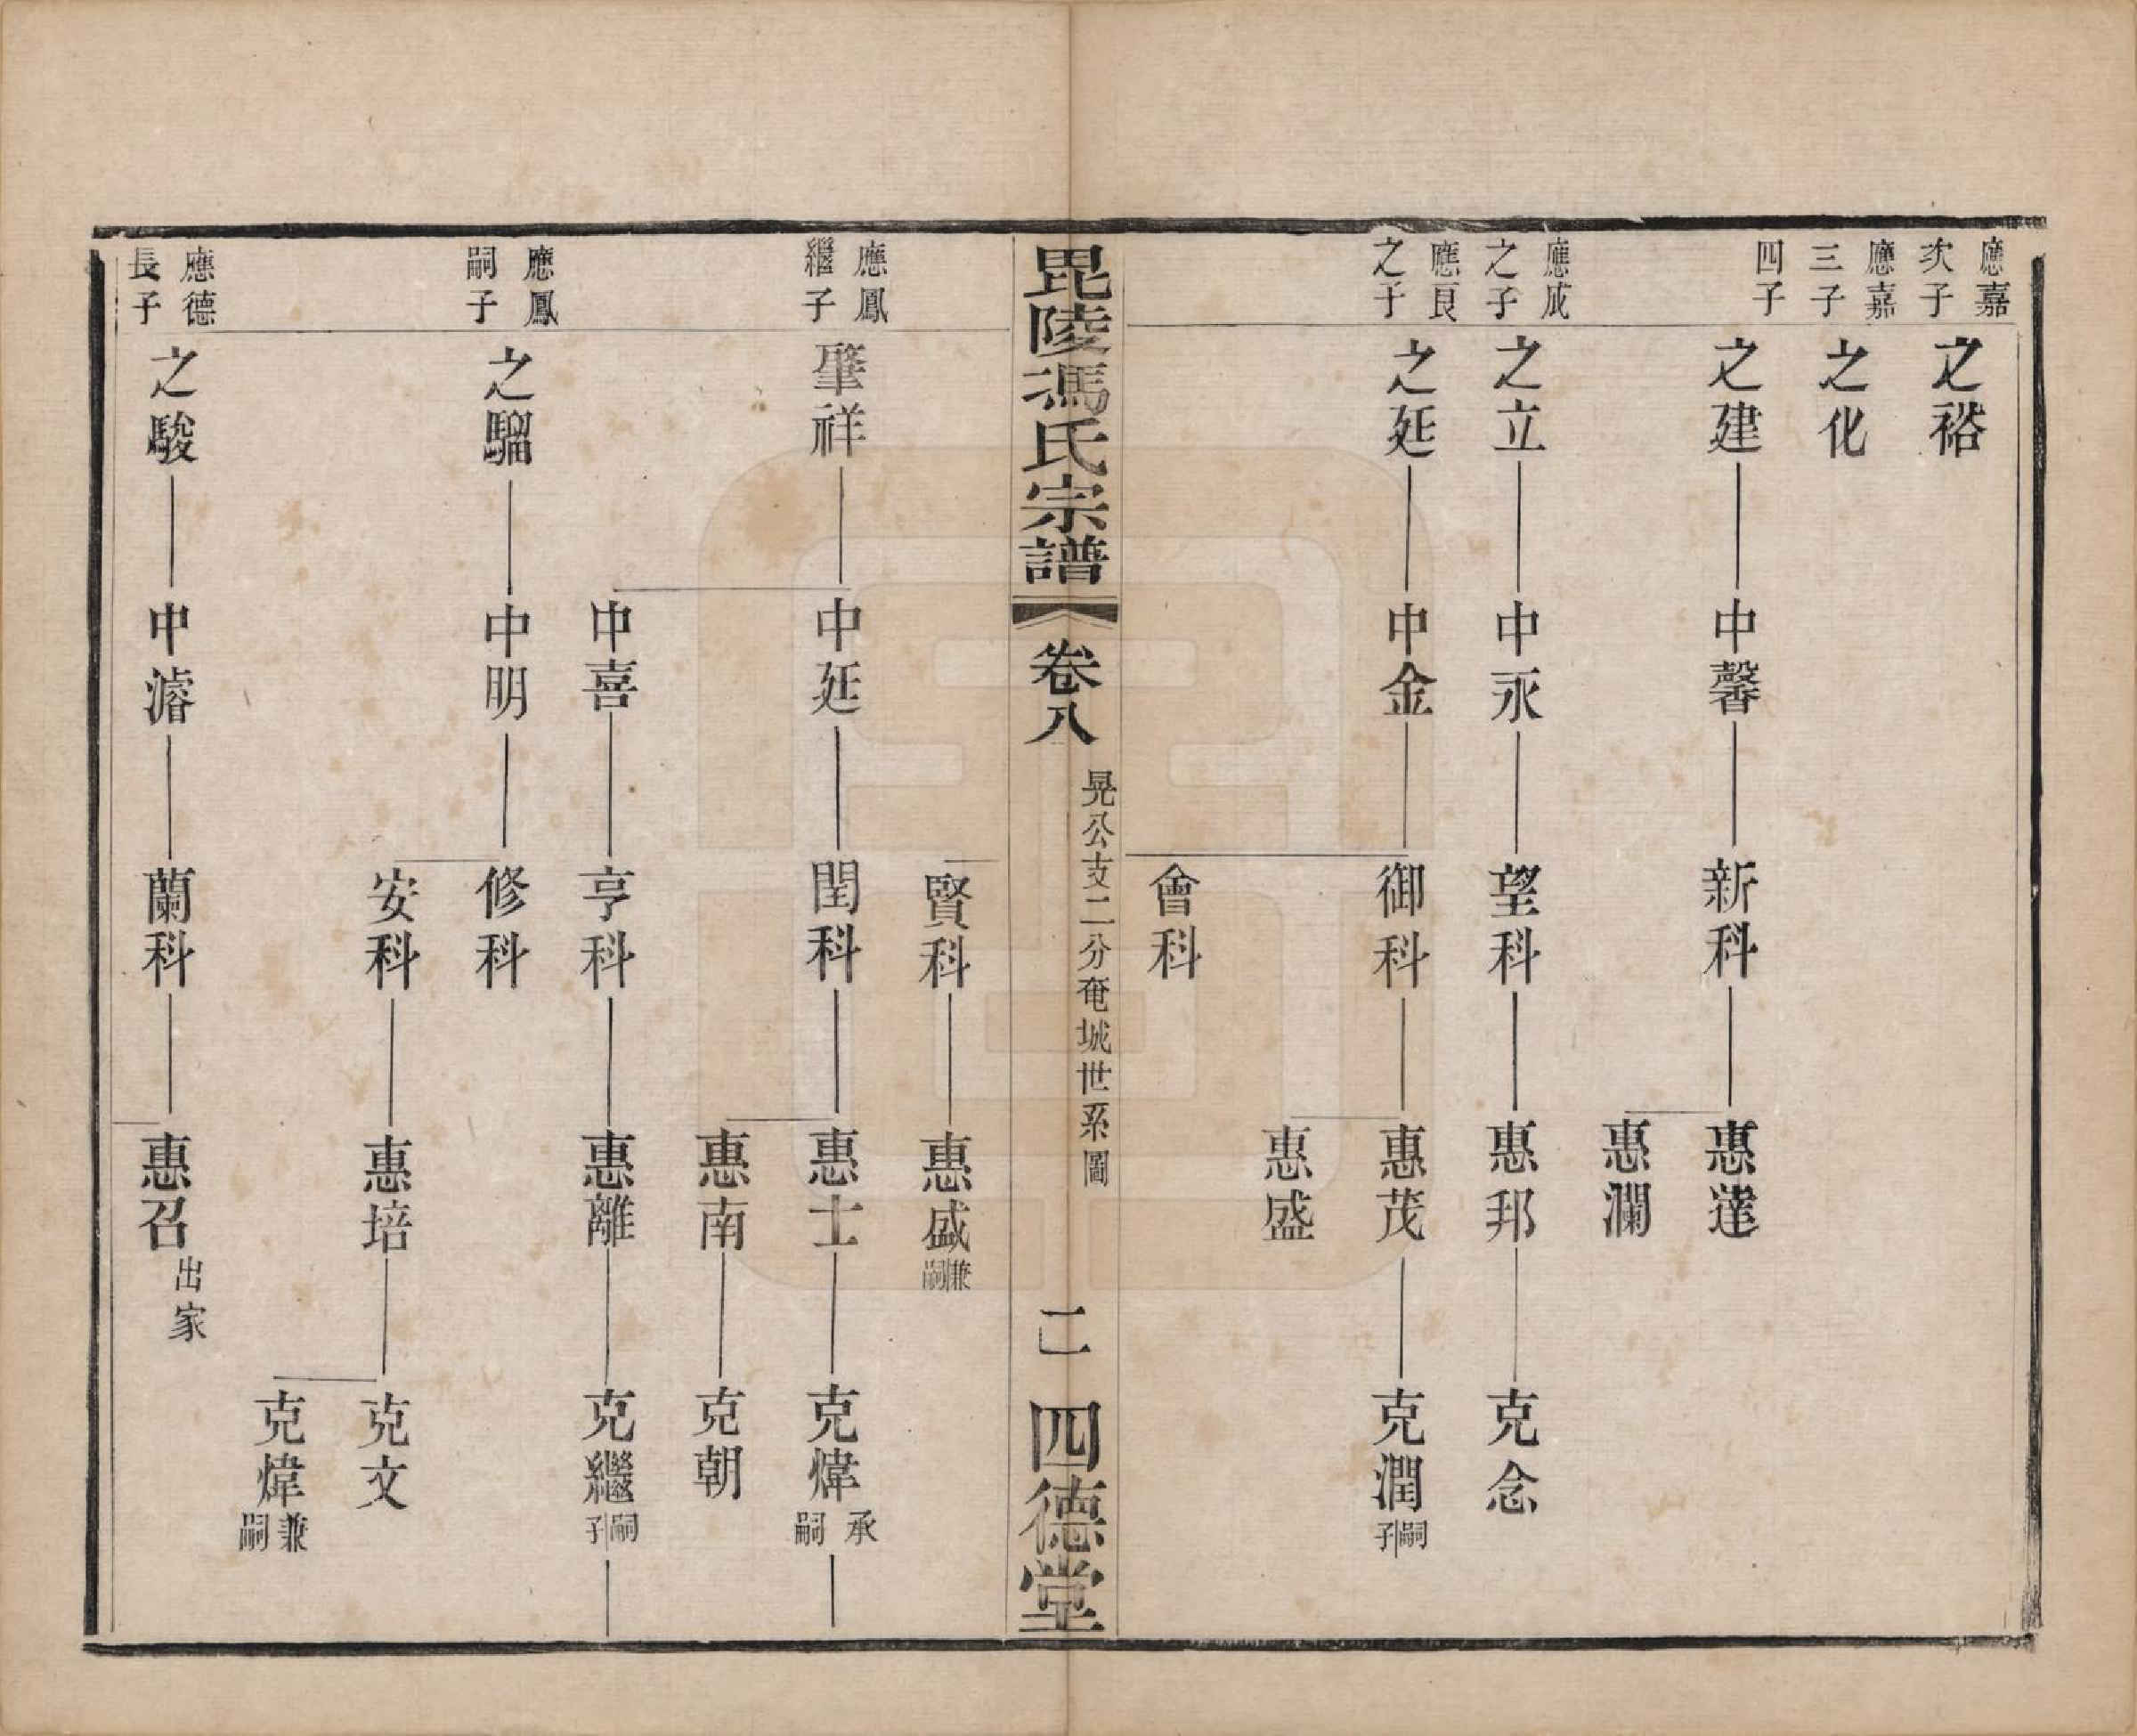 應嘉
次子
之裕
應嘉
三子
之化
四子
之建
中馨
新科
惠達
惠瀾
應成
之子
之立
中永
望科
惠邦
克念
應良
之子
之延
中金
御科
惠茂
克潤
嗣子
惠盛
會科
毘陵馮氏宗譜
卷八
晃公支二分奄城世系圖
二
四德堂
賢科
惠盛
兼嗣
應鳳
繼子
肇祥
中延
閏科
惠士
克煒
承嗣
惠南
克朝
中喜
亨科
惠離
克繼
嗣子
應鳳
嗣子
之騮
中明
修科
安科
惠培
克文
克煒
兼嗣
應德
長子
之駿
中濬
蘭科
惠召
出家